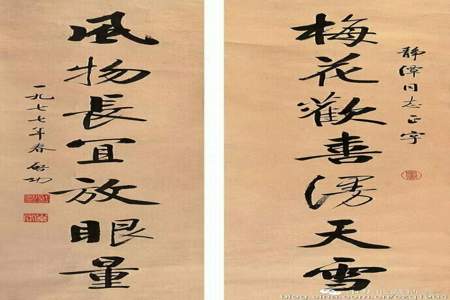 靜澤同志正字
梅花歡喜漫天雪
風物長宜放眼量
一九七七年春 啓功